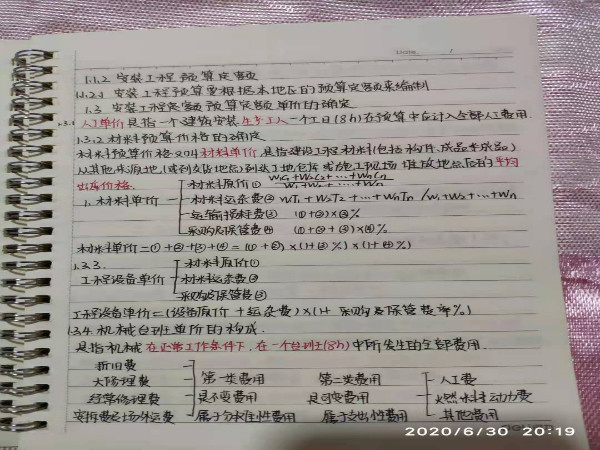 Date /
1.1.2 安装工程预算定额
1.1.2.1 安装工程预算要根据本地区的预算定额来编制
1.3 安装工程定额预算定额单价的确定
1.3.1 人工单价是指一个建筑安装生产工人一个工日(8h)在预算中应计入全部人工费用.
1.3.2 材料预算价格的确定
材料预算价格又叫材料单价,是指建设工程材料(包括构件,成品半成品)
从其他来源地,(或到交货地点)到达工地仓库或施工现场堆放地点后的平均
出库价格.
材料原价① W1C1+W2C2+…+WnCn / W1+W2+…+Wn
1. 材料单价 材料运杂费② W1T1+W2T2+…+WnTn /W1+W2+…+Wn
运输损耗费③ (①+②)×③%
采购及保管费④ (①+②+③)×④%
材料单价=①+②+③+④=(①+②)×(1+③%)×(1+④%)
1.3.3. 材料原价①
工程设备单价 材料运杂费②
采购及保管费③
工程设备单价=(设备原价+运杂费)×(1+采购及保管费率%)
1.3.4. 机械台班单价的构成.
是指机械在正常工作条件下,在一个台班(8h)中所发生的全部费用.
折旧费
大修理费 第一类费用 第二类费用 人工费
经常修理费 是不变费用 是可变费用 燃料动力费
安拆费及场外运费 属于分摊性费用 属于支出性费用 其他费用
2020/6/30 20:19